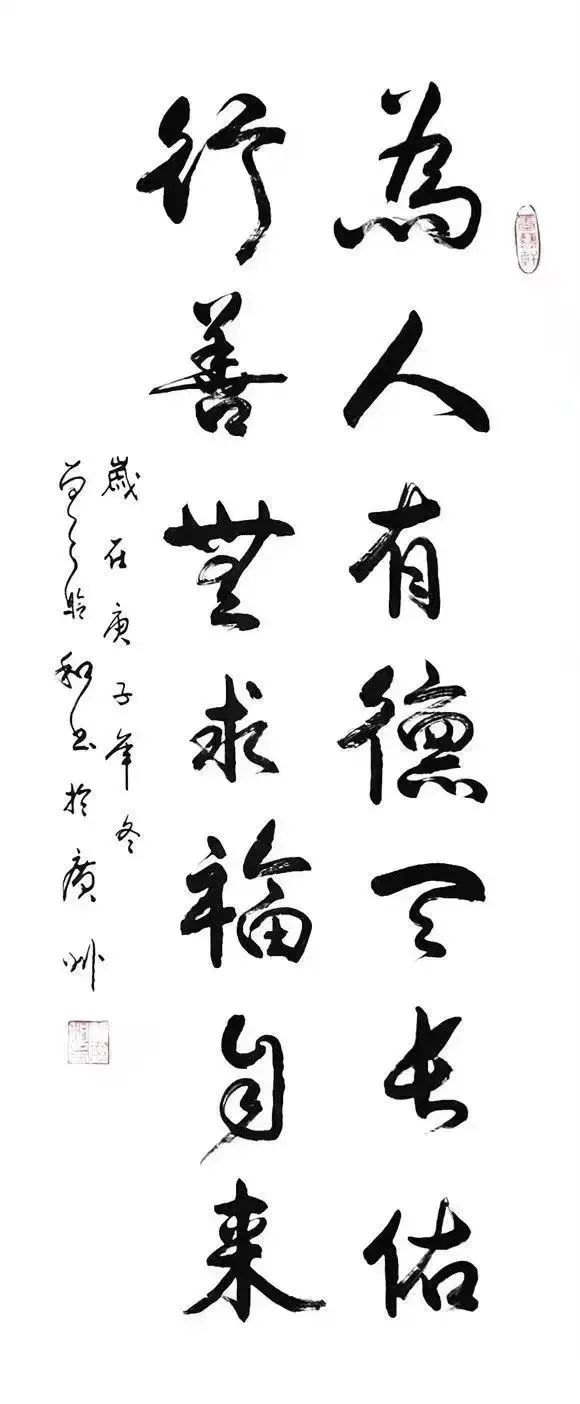 為人有德天長佑
行善無求福自来
歲在庚子年冬
和書於廣州